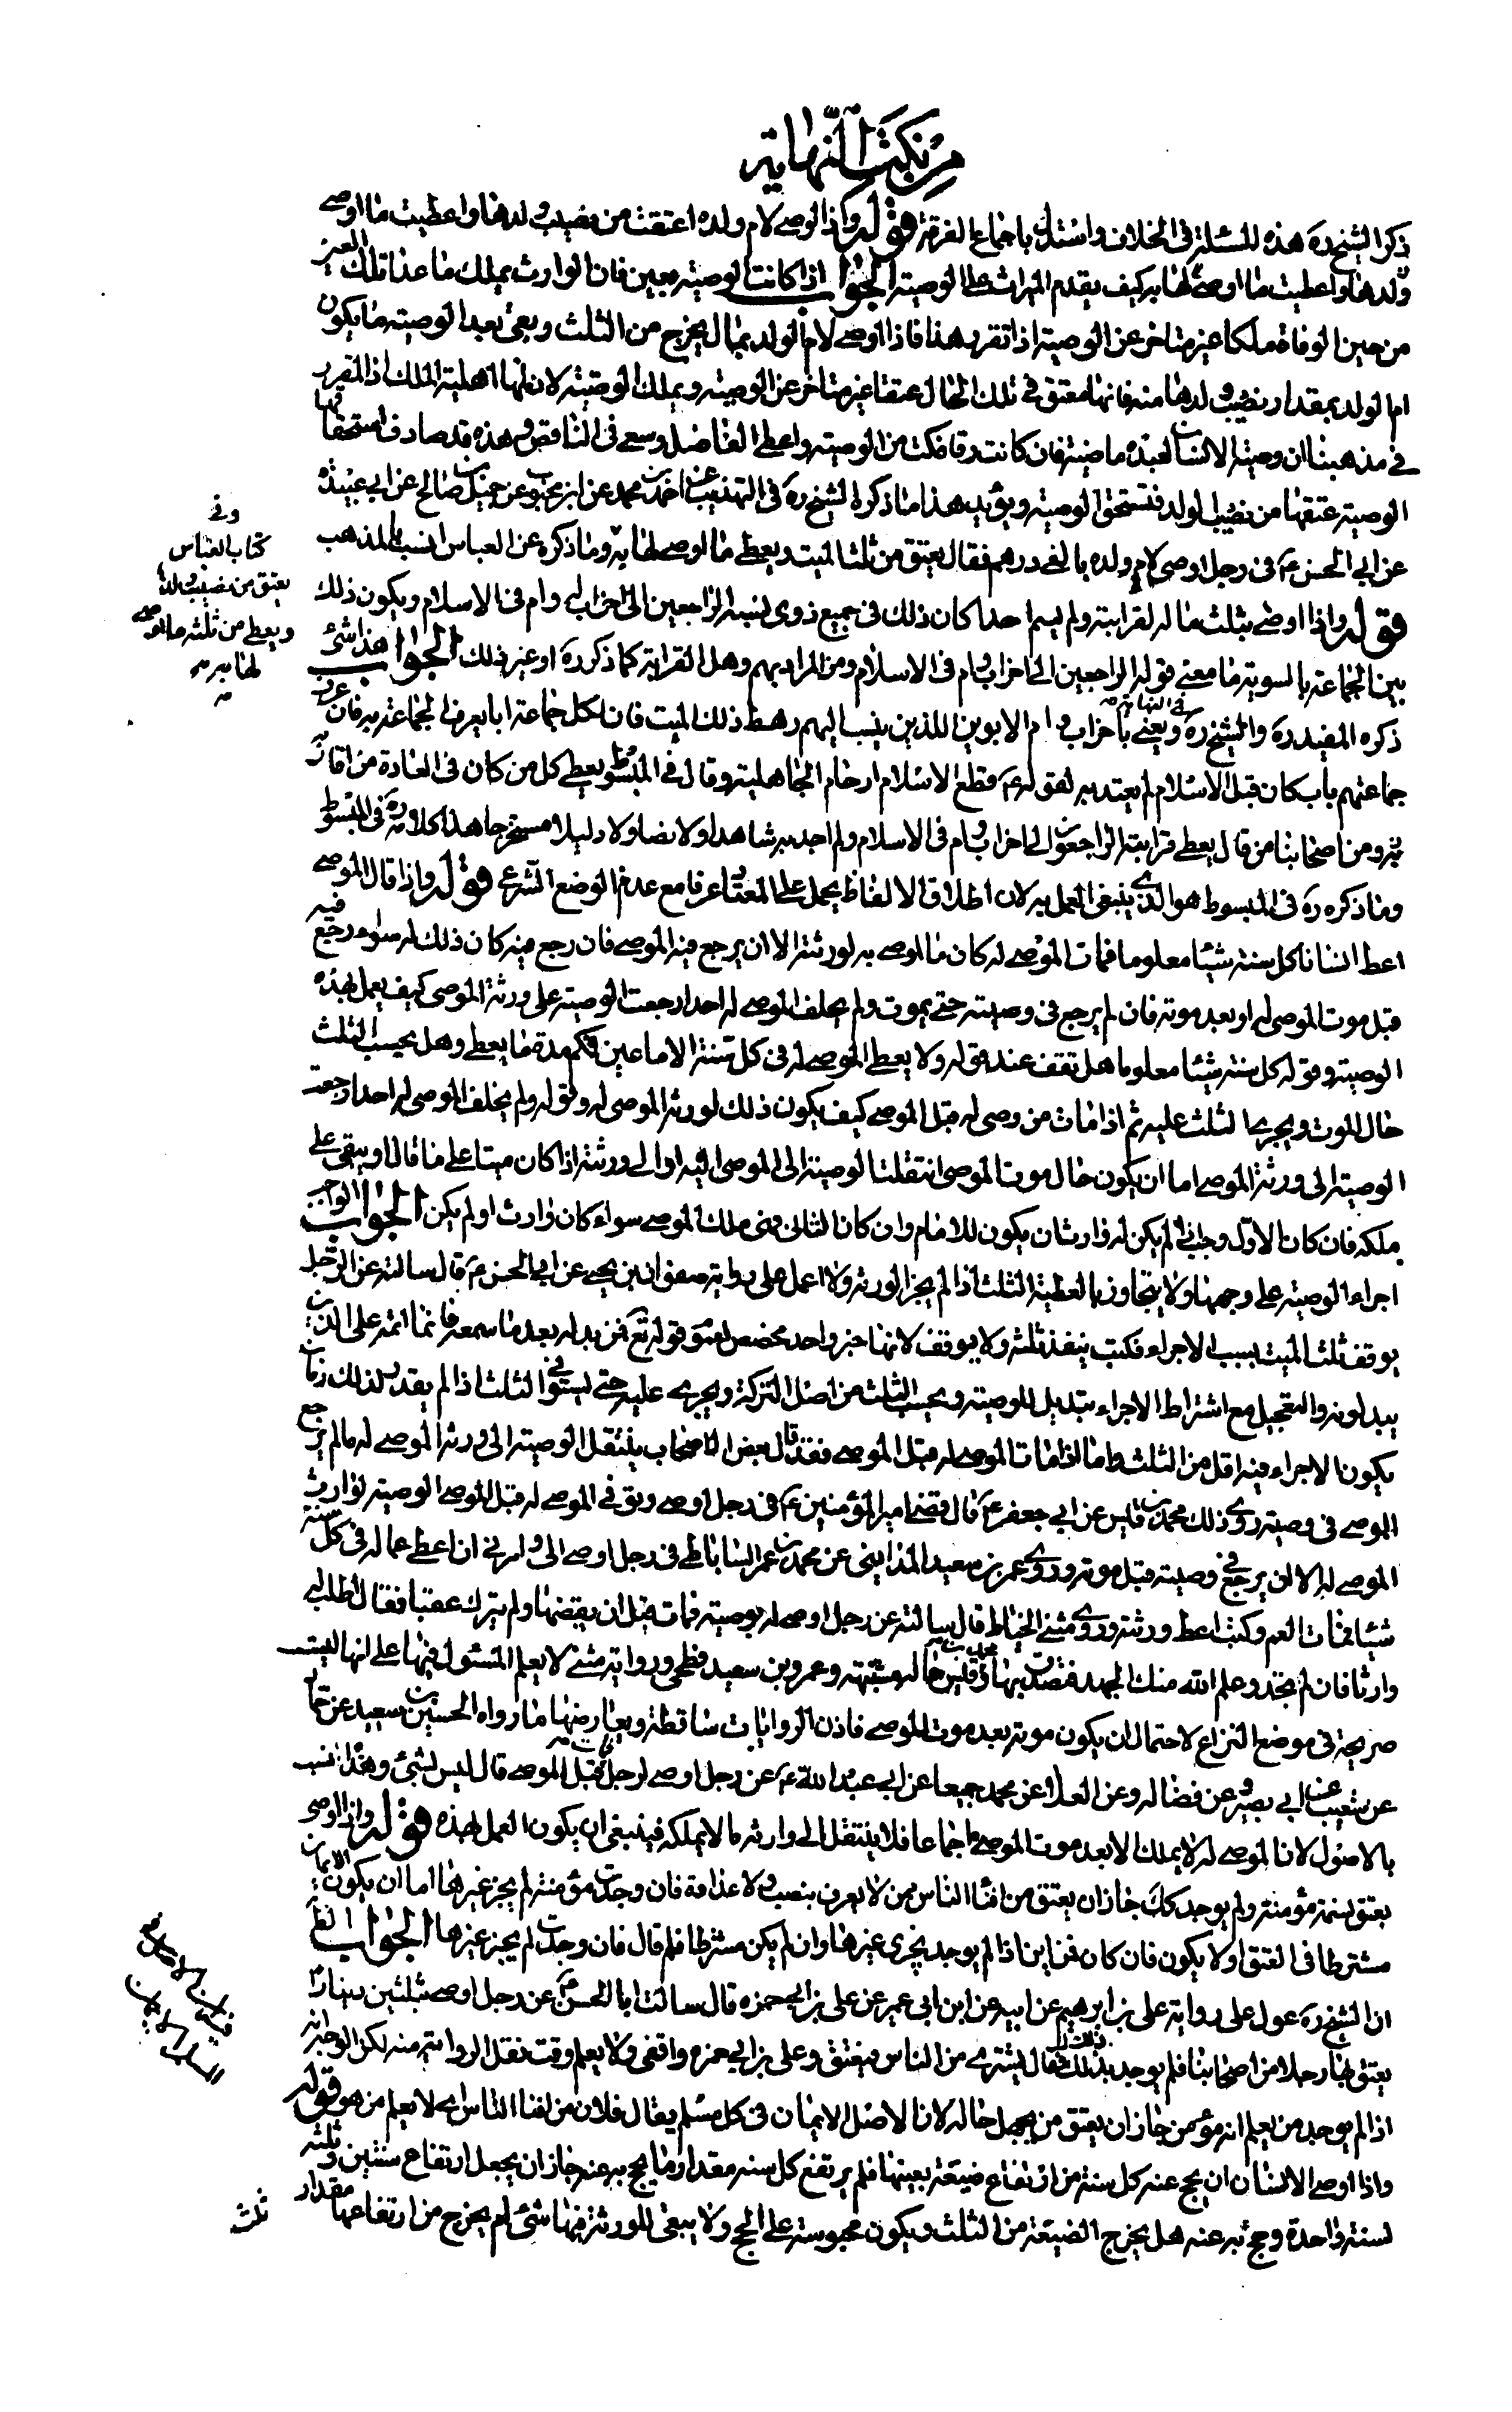 من نكت النهاية
ذكر الشيخ ره هذه المسئلة في الخلاف واستدل باجماع الفرقة قوله واذا اوصى لام ولده اعتقت من نصيب ولدها واعطيت ما اوصى
ولدها واعطيت ما اوصى لها به كيف يقدم الميراث على الوصية الجواب اذا كانت الوصية بعين فان الوارث يملك ما عدا تلك العين
من حين الوفاة ملكا غير متاخر عن الوصية اذا تقرر هذا فاذا اوصى لام الولد بمال يخرج من الثلث وبقى بعد الوصية ما يكون
ام الولد بمقدار نصيب ولدها منه فانها تعتق في تلك الحال عتقا غير متاخر عن الوصية ويملك الوصية لان لها اهلية الملك اذ المقرر
في مذهبنا ان وصية الانسان لعبده ماضية فان كانت وفا فكت من الوصية واعطى الفاضل وسعى في الناقص وهذه قد صادف استحقاقها
الوصية عتقها من نصيب الولد فتستحق الوصية ويؤيد هذا ما ذكره الشيخ ره في التهذيب عن احمد بن محمد عن ابن محبوب عن جميل بن صالح عن ابي عبيدة
عن ابي الحسن ع في رجل اوصى لام ولده بالفي درهم فقال يعتق من ثلث الميت ويعطى ما اوصى لها به وما ذكره عن العباس انسب بالمذهب
قوله واذا اوصى بثلث ماله لقرابته ولم يسم احدا كان ذلك في جميع ذوي نسبه الراجعين الى اخر اب وام في الاسلام ويكون ذلك
بين الجماعة بالسوية ما معنى قوله الراجعين الى اخر اب وام في الاسلام ومن المراد بهم وهل القرابة كما ذكره ره او غير ذلك الجواب هذا شئ
ذكره المفيد ره والشيخ ره في النهاية ويعني باخر اب وام الابوين اللذين ينسب اليهم رهط ذلك الميت فان لكل جماعة ابا يعرف الجماعة به فان عرف
جماعتهم باب كان قبل الاسلام لم يعتد به لقوله ع قطع الاسلام ارحام الجاهلية وقال في المبسوط يعطى كل من كان في العادة من اقاربه
به ومن اصحابنا من قال يعطى قرابته الراجعون الى اخر اب وام في الاسلام ولم اجد به شاهدا ولا نصا ولا دليلا مستخرجا هذا كلامه ره في المبسوط
وما ذكره ره في المبسوط هو الذي ينبغي العمل به لان اطلاق الالفاظ يحمل على المعتاد عرفا مع عدم الوضع الشرعي قوله واذا قال الموصى
اعط انسانا كل سنة شيئا معلوما فمات الموصى له كان ما اوصى به لورثته الا ان يرجع فيه الموصى فان رجع فيه كان ذلك له سواء رجع فيه
قبل موت الموصى له او بعد موته فان لم يرجع في وصيته حتى يموت ولم يخلف الموصى له احدا رجعت الوصية على ورثة الموصى كيف يعمل بهذه
الوصية وقوله كل سنة شيئا معلوما هل تقف عند قوله ولا يعطى الموصى له في كل سنة الا ما عين فكم مدة ما يعطى وهل يحسب الثلث
حال الموت ويجري الثلث عليه ثم اذا مات من وصى له قبل الموصى كيف يكون ذلك لورثة الموصى له وقوله ولم يخلف الموصى له احدا رجعت
الوصية الى ورثة الموصى اما ان يكون حال موت الموصى انتقلت الوصية الى الموصى اليه او الى ورثته اذا كان ميتا على ما قال او يبقى على
ملكه فان كان الاول وجب اذا لم يكن له وارث ان يكون للامام وان كان الثاني فهي ملك الموصى سواء كان وارث او لم يكن الجواب الواجب
اجراء الوصية على وجهها ولا يتجاوز بالعطية الثلث اذا لم يجز الورثة ولا اعمل على رواية صفوان بن يحيى عن ابي الحسن ع قال سالته عن الرجل
يوقف ثلث الميت بسبب الاجراء فكتب ينفذ ثلثه ولا يوقف لانها خبر واحد مخصص لعموم قوله تع فمن بدله بعد ما سمعه فانما اثمه على الذين
يبدلونه والتعجيل مع اشتراط الاجراء تبديل للوصية ويحسب الثلث من اصل التركة ويجري عليه حتى يستوفي الثلث اذا لم يقدر لذلك زمان
يكون الاجراء فيه اقل من الثلث واما اذا مات الموصى له قبل الموصى فقد قال بعض الاصحاب ينتقل الوصية الى ورثة الموصى له ما لم يرجع
الموصى في وصيته روى ذلك محمد بن قيس عن ابي جعفر ع قال قضى امير المؤمنين ع في رجل اوصى وتوفي الموصى له قبل الموصى الوصية لوارث
الموصى له الا ان يرجع في وصيته قبل موته وروى عمر بن سعيد المدايني عن محمد بن عمر الساباطي في رجل اوصى الي وامرني ان اعطي عما له في كل سنة
شيئا فمات العم وكتب اعط ورثته وروى مثنى الحناط قال سالته عن رجل اوصى له بوصية فمات قبل ان يقبضها ولم يترك عقبا فقال اطلب له
وارثا فان لم تجد وعلم الله منك الجهد فتصدق بها ومحمد بن قيس حاله مشتبهة وعمرو بن سعيد فطحي ورواية مثنى لا يعلم المسئول فيها على انها ليست
صريحة في موضع النزاع لاحتمال ان يكون موته بعد موت الموصى فاذن الروايات ساقطة ويعارضها ما رواه الحسين بن سعيد عن حماد
عن شعيب عن ابي بصير وعن فضالة وعن العلاء عن محمد جميعا عن ابي عبد الله ع عن رجل اوصى لرجل فمات قبل الموصى قال ليس بشئ وهذا انسب
بالاصول لان الموصى له لا يملك الا بعد موت الموصى اجماعا فلا ينتقل الى وارثه ما لا يملكه فينبغي ان يكون العمل بهذه قوله واذا اوصى
بعتق نسمة مؤمنة ولم يوجد كك جاز ان يعتق من افناء الناس ممن لا يعرف بنصب ولا عداوة فان وجدت مؤمنة لم يجز غيرها اما ان يكون الايمان
مشترطا في العتق او لا يكون فان كان فمن اين اذا لم يوجد يجزي غيرها وان لم يكن مشترطا فلم قال فان وجدت لم يجز غيرها الجواب الظ
ان الشيخ ره عول على رواية علي بن ابرهيم عن ابيه عن ابن ابي عمير عن علي بن ابي حمزه قال سالت ابا الحسن ع عن رجل اوصى بثلثين دينارا
يعتق بها رجلا من اصحابنا فلم يوجد بذلك قال يشتري من الناس فيعتق وعلي بن ابي حمزه واقفي ولا يعلم وقت نقل الرواية منه لكن الوجه انه
اذا لم يوجد من يعلم انه مؤمن جاز ان يعتق من يجهل حاله لان الاصل الايمان في كل مسلم يقال فلان من افناء الناس اي لا يعلم من هو قوله
واذا اوصى الانسان ان يحج عنه كل سنة من ارتفاع ضيعة بعينها فلم يرتفع كل سنه مقدار ما يحج به عنه جاز ان يجعل ارتفاع سنتين وثلثه
لسنة واحدة وحج به عنه هل يخرج الضيعة من الثلث ويكون محبوسة على الحج ولا يبقى للورثة فيها شئ ام يخرج من ارتفاعها مقدار
ثلث
وفي
كتاب العباس
يعتق من نصيب ولدها
ويعطى من ثلثه ما اوصى
لها به